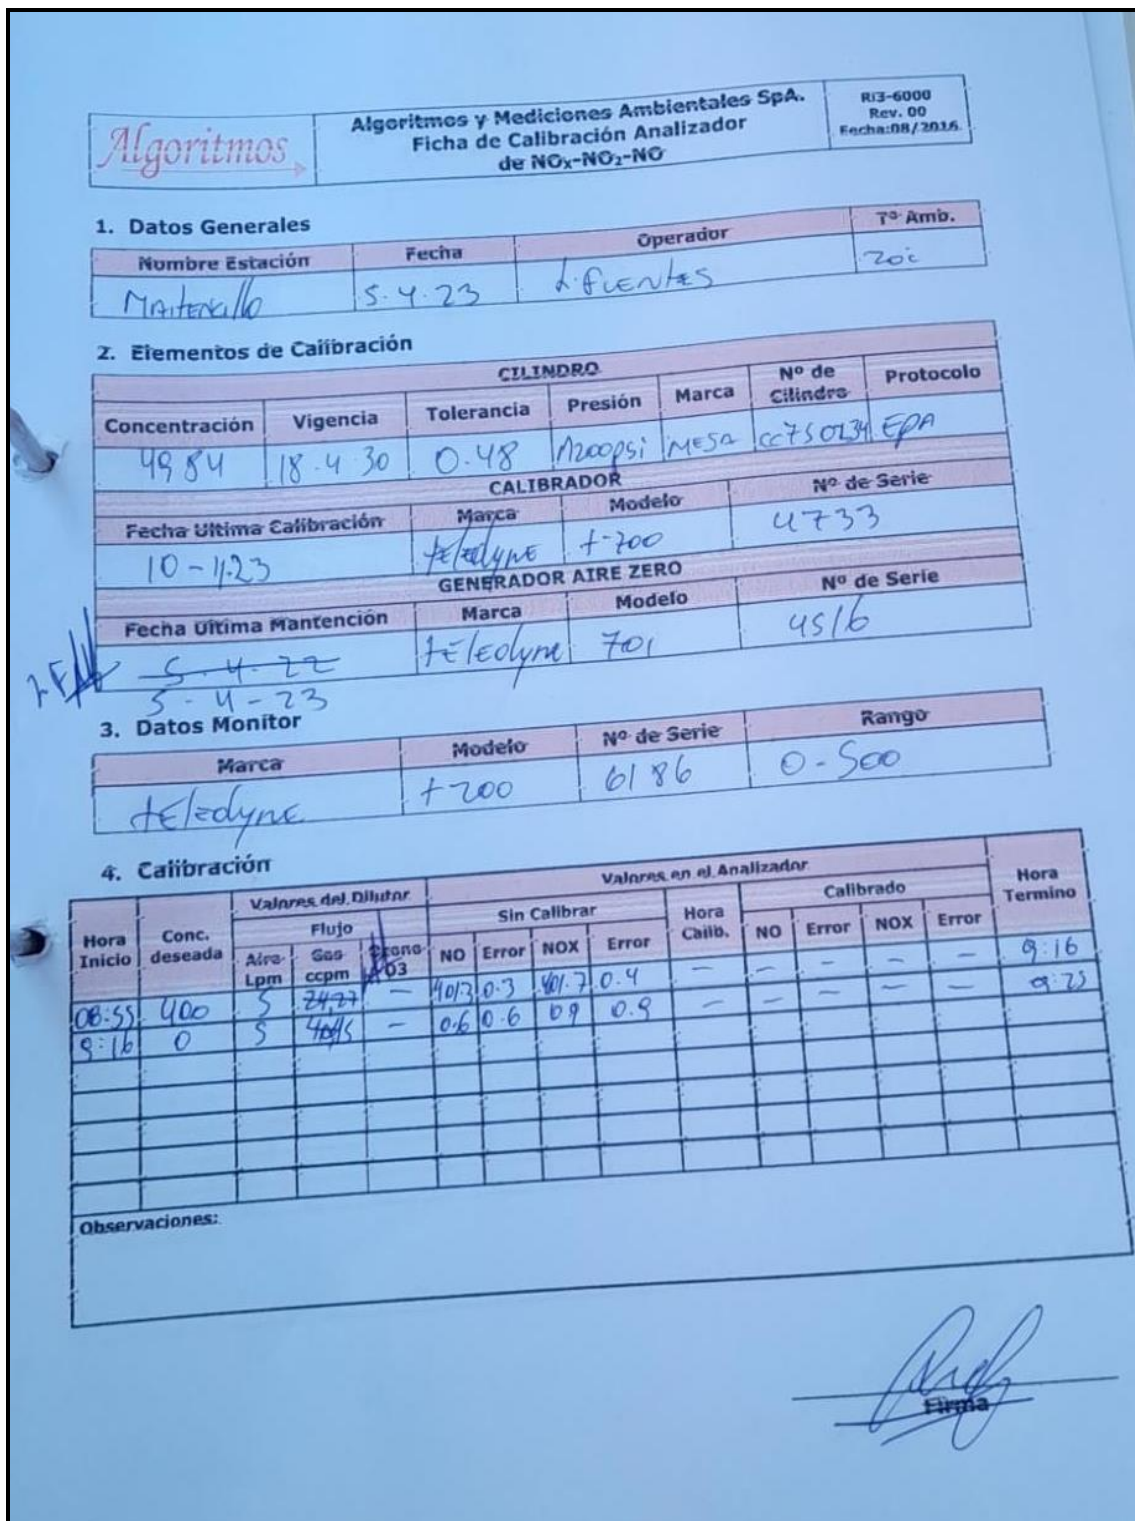 Algoritmos
Algoritmos y Mediciones Ambientales SpA.
Ficha de Calibración Analizador
de NOx-NO2-NO
Ri3-6000
Rev. 00
Fecha:08/2016.
1. Datos Generales
Nombre Estación Fecha Operador Tº Amb.
Maitencillo 5.4.23 L. FUENTES 20c
2. Elementos de Calibración
CILINDRO
Concentración Vigencia Tolerancia Presión Marca Nº de Cilindro Protocolo
49.84 18.4.30 0.48 1200psi MESA CC750234 EPA
CALIBRADOR
Fecha Ultima Calibración Marca Modelo Nº de Serie
10-1.23 teledyne t-700 4733
GENERADOR AIRE ZERO
Fecha Ultima Mantención Marca Modelo Nº de Serie
5-4-22 teledyne 701 4516
5-4-23
3. Datos Monitor
Marca Modelo Nº de Serie Rango
teledyne t-200 6186 0-500
4. Calibración
Hora Inicio Conc. deseada Valores del Dilutor Valores en el Analizador Hora Termino
Flujo Sin Calibrar Hora Calib. Calibrado
Aire Lpm Gas ccpm Ozono O3 NO Error NOX Error NO Error NOX Error
08:55 400 5 - 401.3 0.3 401.7 0.4 - - - - - 9:16
9:16 0 5 - 0.6 0.6 0.9 0.9 - - - - - 9:25
Observaciones:
Firma